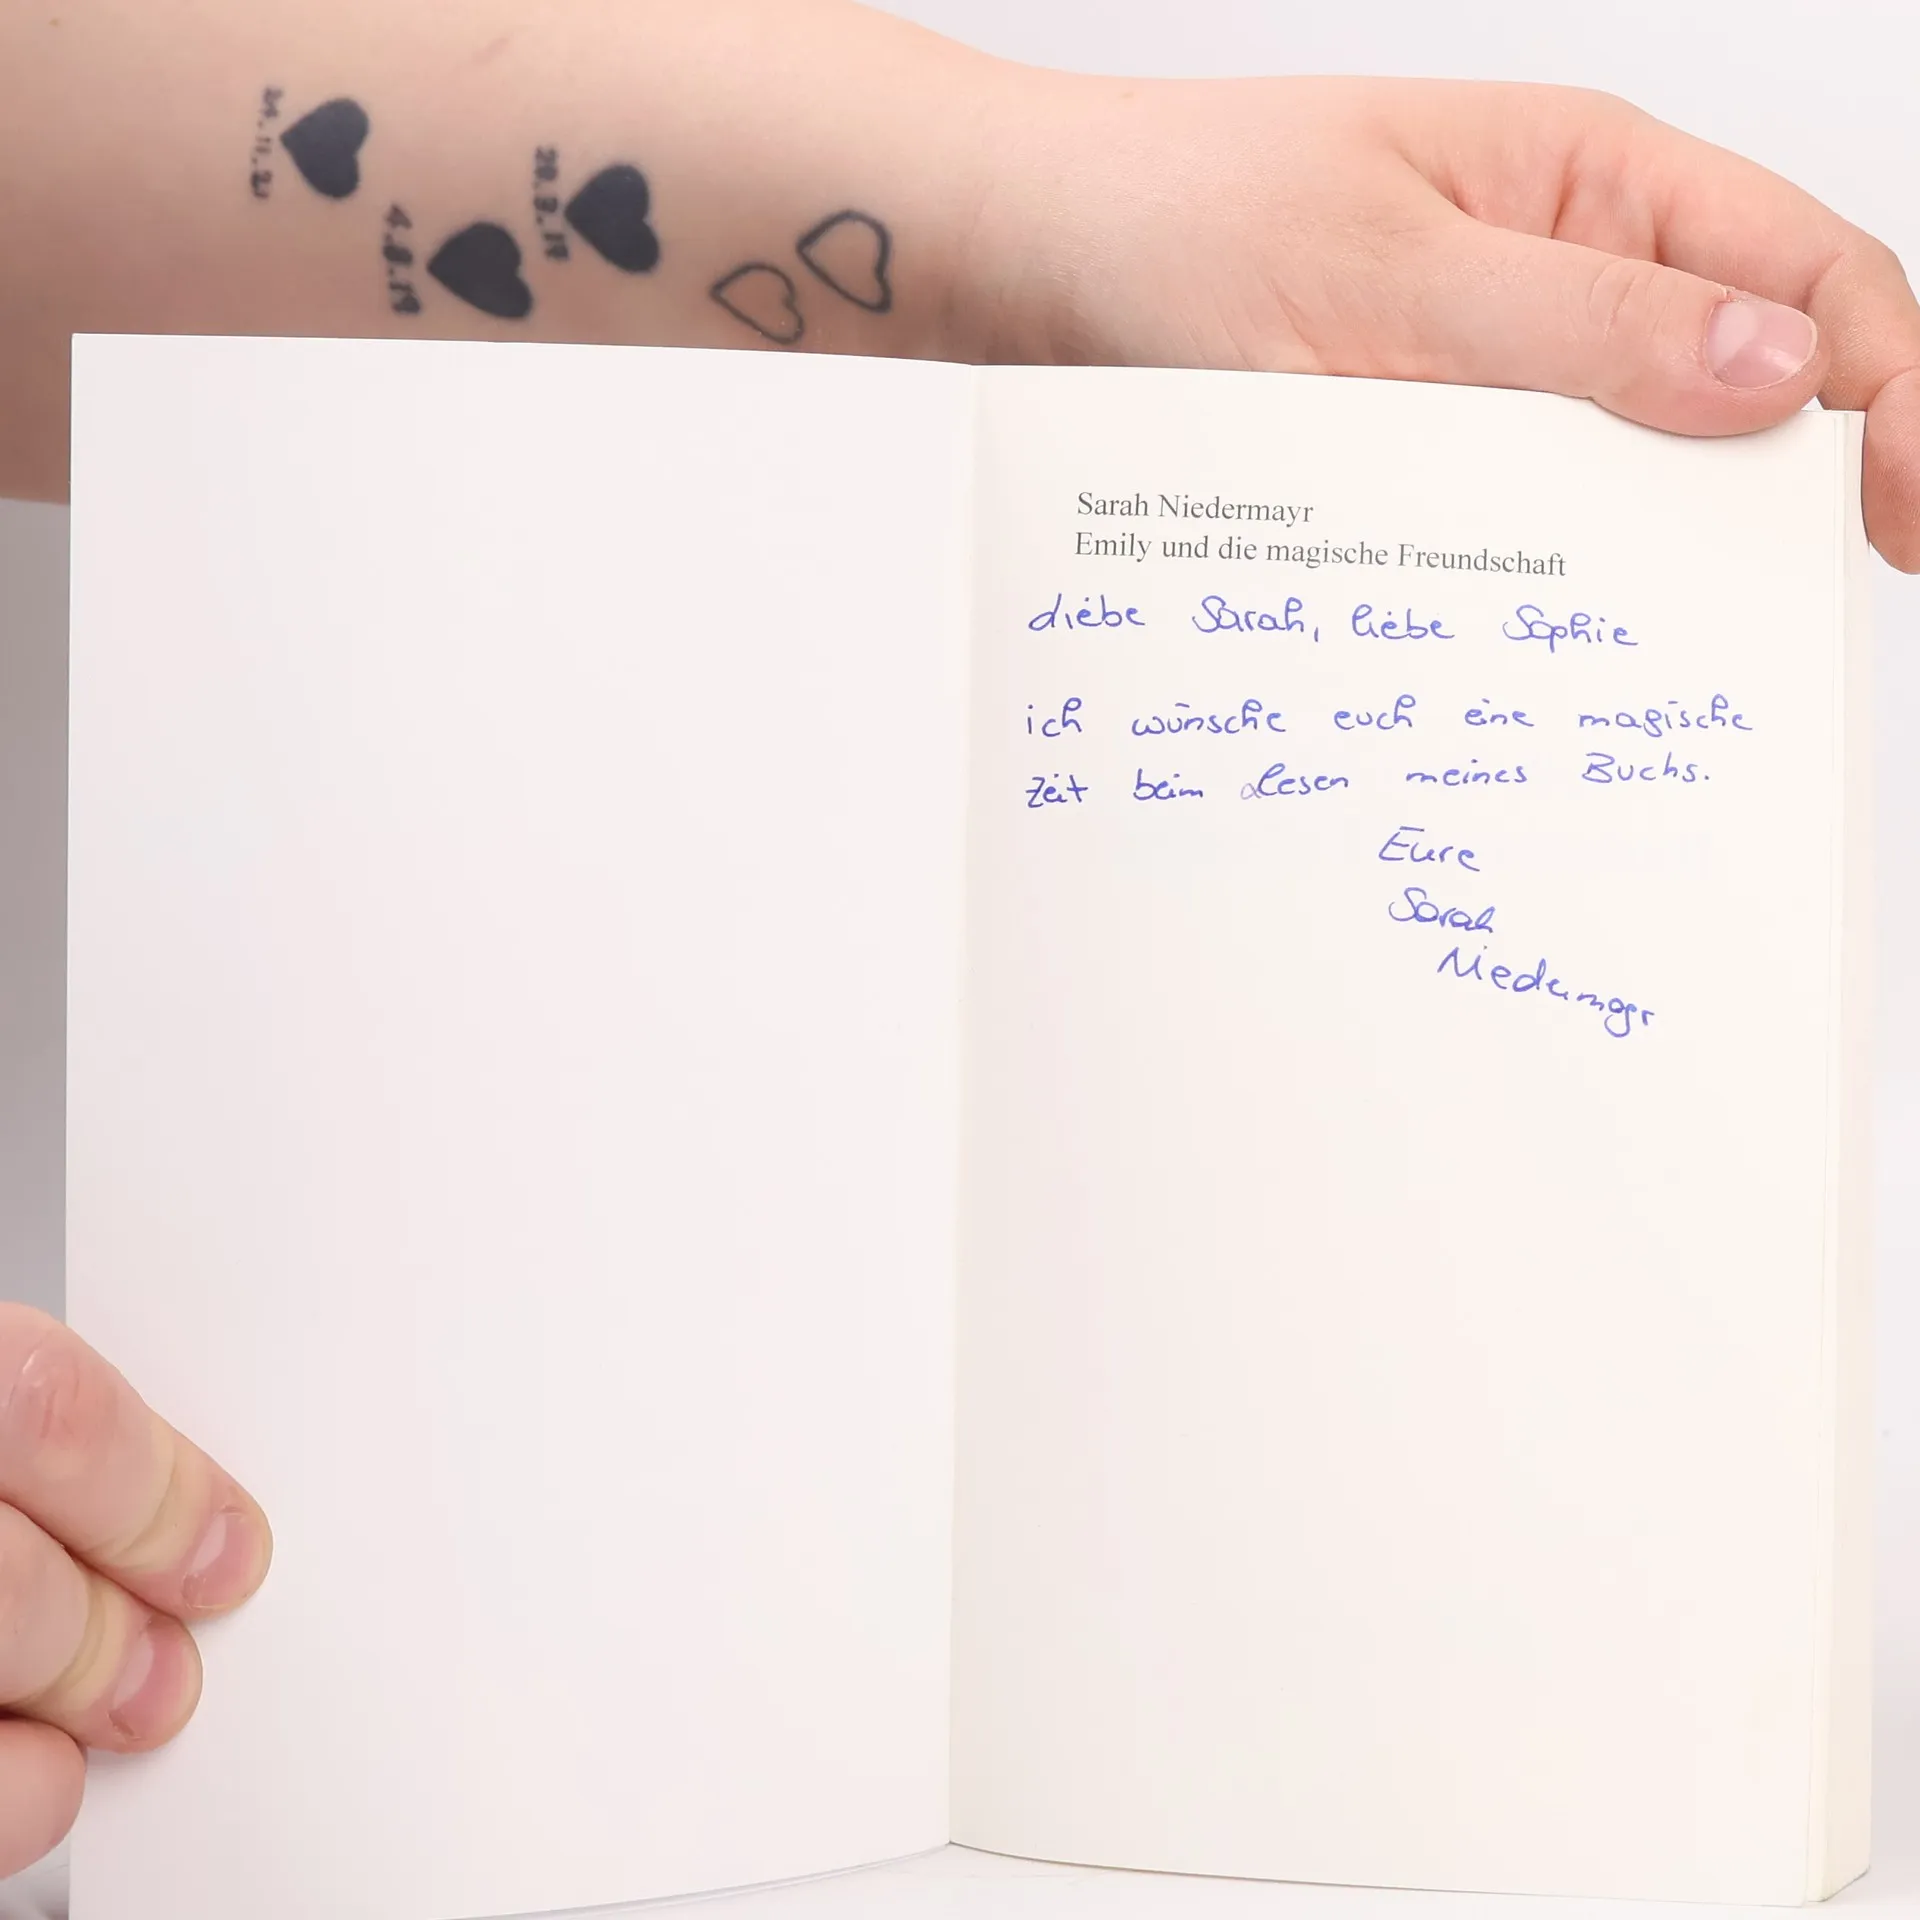 4.8.19
Sarah Niedermayr
Emily und die magische Freundschaft
Liebe Sarah, liebe Sophie
ich wünsche euch eine magische
Zeit beim Lesen meines Buchs.
Eure
Sarah
Niedermayr